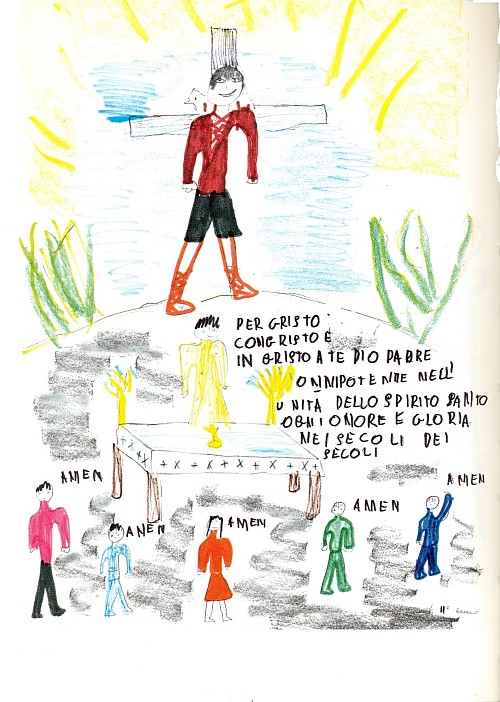 PER GRISTO
CONGRISTO E
IN GRISTO A TE DIO PADRE
ONNIPOTENTE NELL'
UNITA DELLO SPIRITO SANTO
OGNI ONORE E GLORIA
NEI SECOLI DEI
SECOLI
AMEN
AMEN
AMEN
AMEN
AMEN